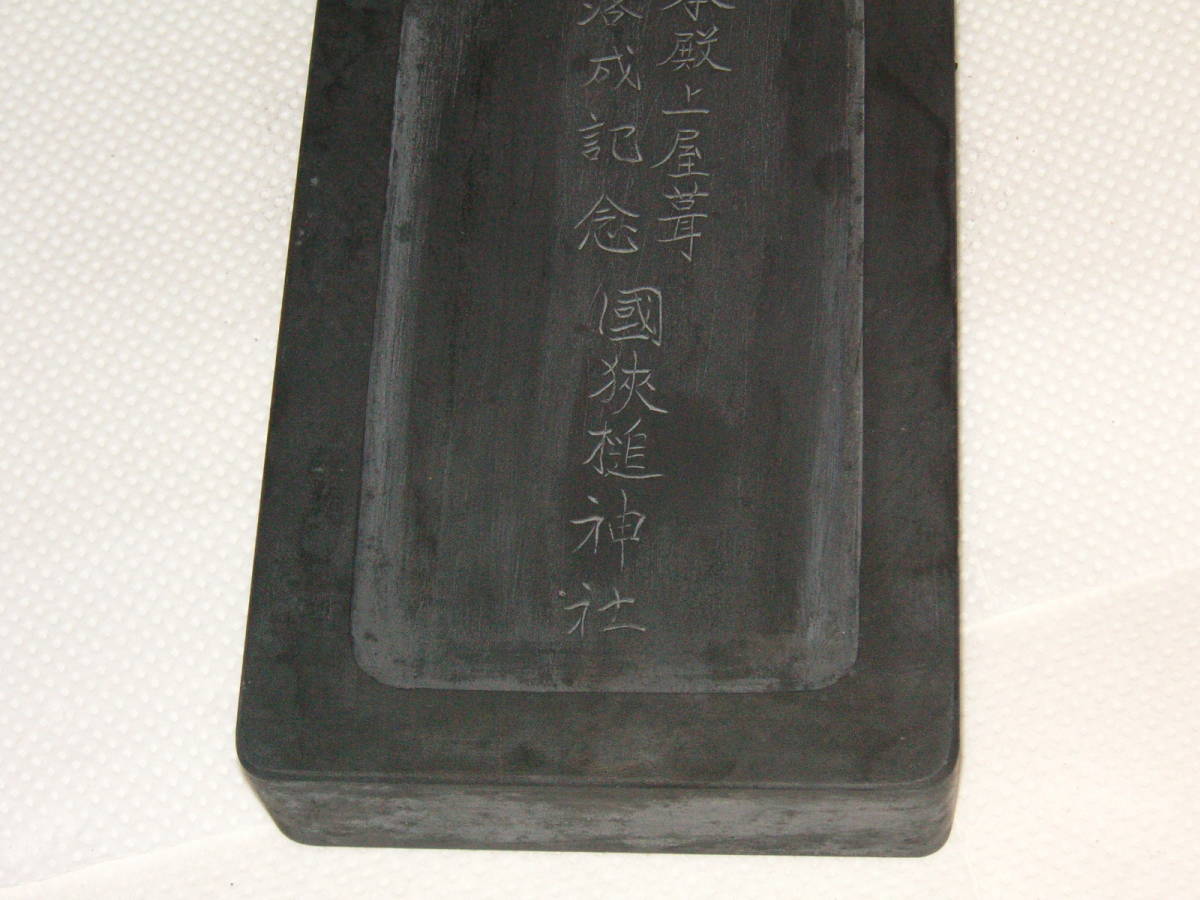 本殿上屋葺
落成記念
國狹槌神社